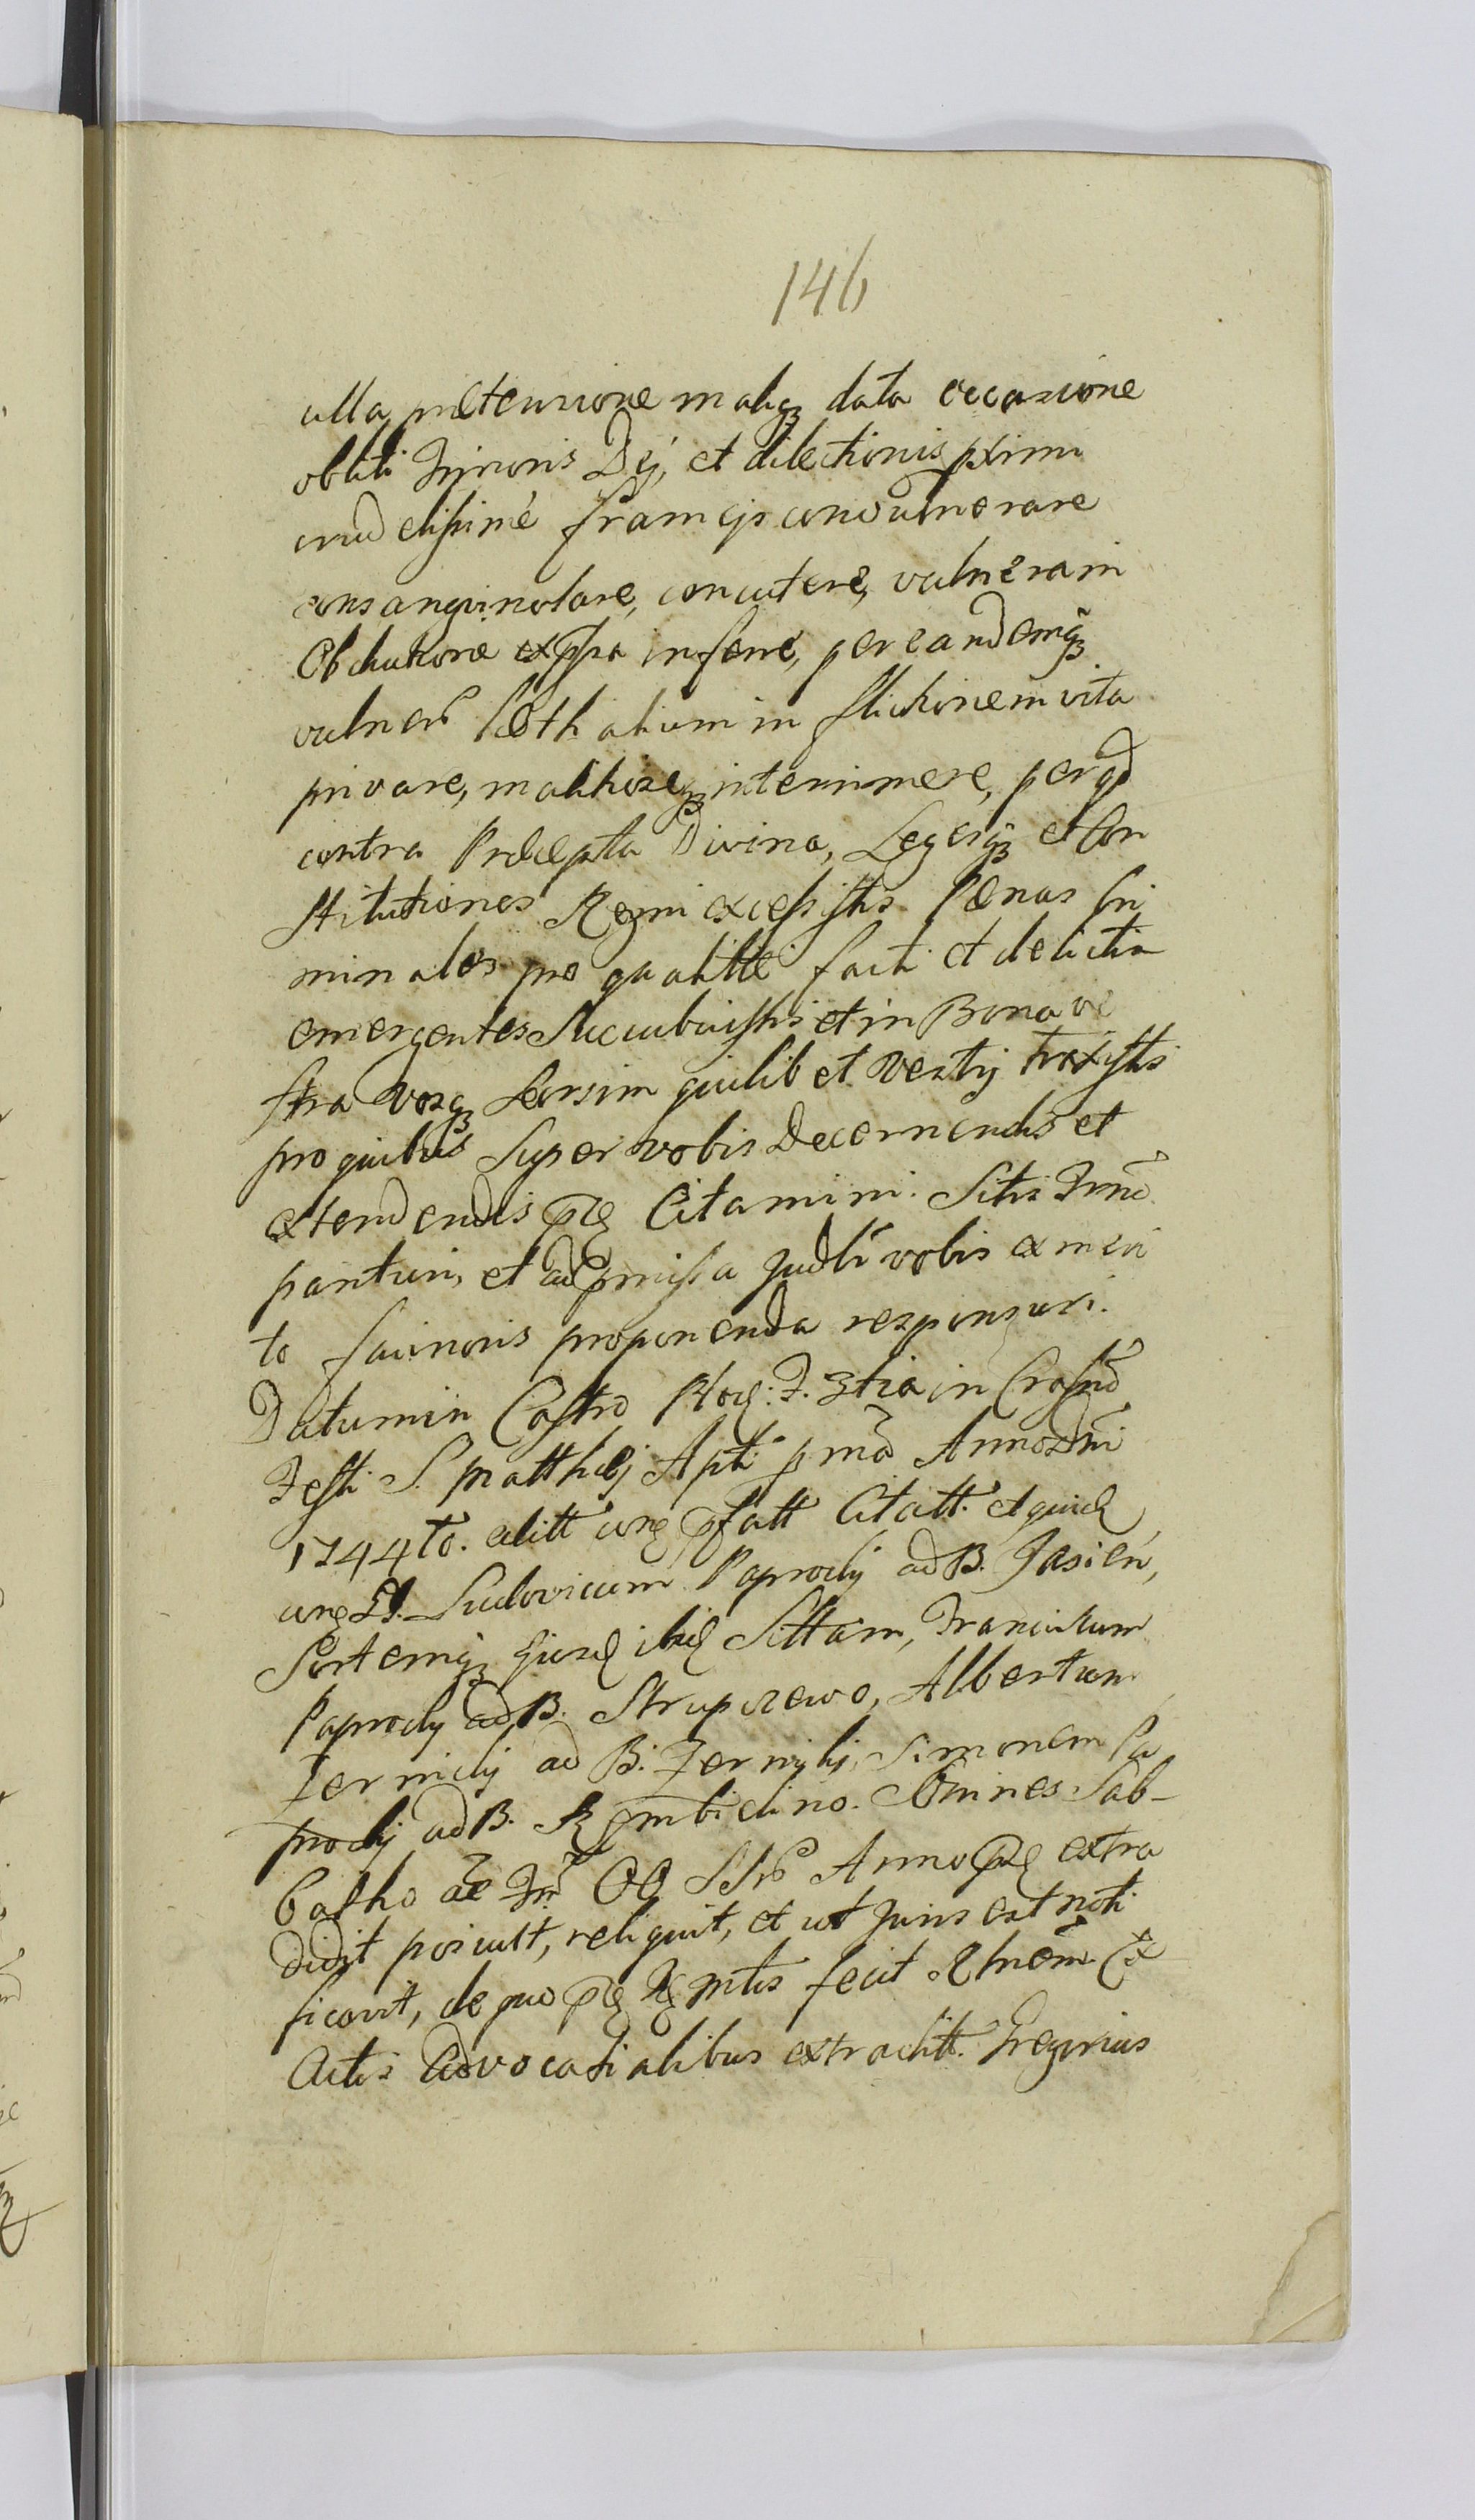 146
ulla prætensione maliq₃ data occasione
obliti Timoris Dei, et dilectionis pximi
crudelissime frameis convulnerare
consangvinolare, concutere, vulnera in
Obductione exppssa inferre, per eandemq₃
vulnerũ læthalium inflictionem vita
privare, malitioseq₃ interimmere, per qd
contra Præcepta Divina, Legesq₃ et Con
stitutiones Regni excessistis Pænas Cri
minales pro qualitte facti et delicti
emergentes Succubuistis et in Bona ve
stra vosq₃ Seorsim quilibet Vestrj traxistis
pro quibus Super vobis Decernendis et
extendendis Citamini. Sitis Trmo
parituri, et ad pmissa Judlr vobis ex meri
to facinoris proponenda responsuri.
Datum in Castro F. 3tia in Crastno
Festi S. Matthæj Apli Anno Dni
1744to. editt Citatt. et quid
Ludovicum Paprocky ad B. Jasień,
Sortemq₃ ibid Sittam, Franciscum
Paprocky ad B. Strupczewo, Albertum
Zernicky ad B. Zerniki, Simonem Pa
procky ad B. Omnes Sab-
batho Anno extra
didit posuitt, reliquit, et ut Juris est noti
ficavit, de quo fecit Rlnem Ex
Actis Advocatialibus extraditt. Gregorius